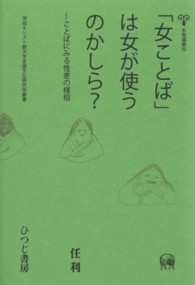 「女ことば」
は女が使う
のかしら？
―ことばにみる性差の様相
任利
ひつじ書房